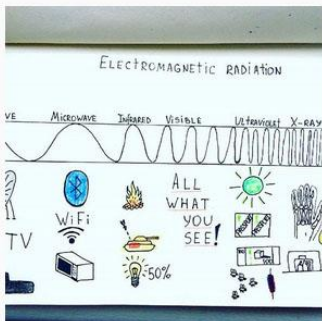 ELECTROMAGNETIC RADIATION
VE MICROWAVE INFRARED VISIBLE ULTRAVIOLET X-RAY
ALL
WHAT
YOU
SEE!
WiFi
TV
50%